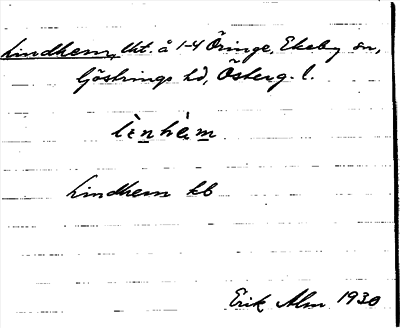 Lindhem, lht. å 1-4 Öringe, Ekeby sn,
Göstrings hd, Österg. l.
lìnhè̱m
Lindhem kb
Erik Alm 1930